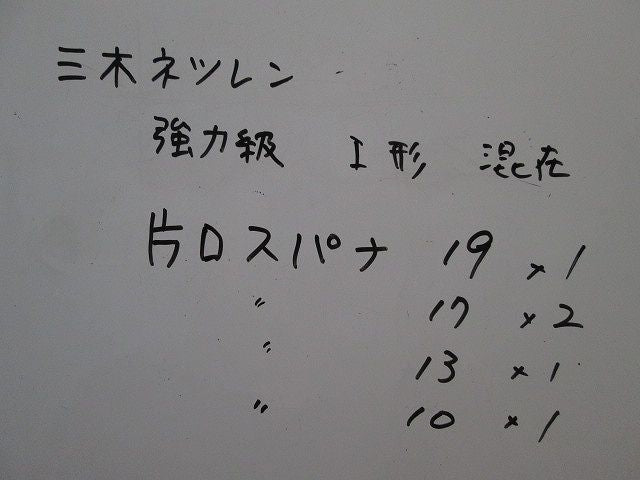 三木ネツレン
強力級 I形 混在
片口スパナ 19 ×1
〃 17 ×2
〃 13 ×1
〃 10 ×1